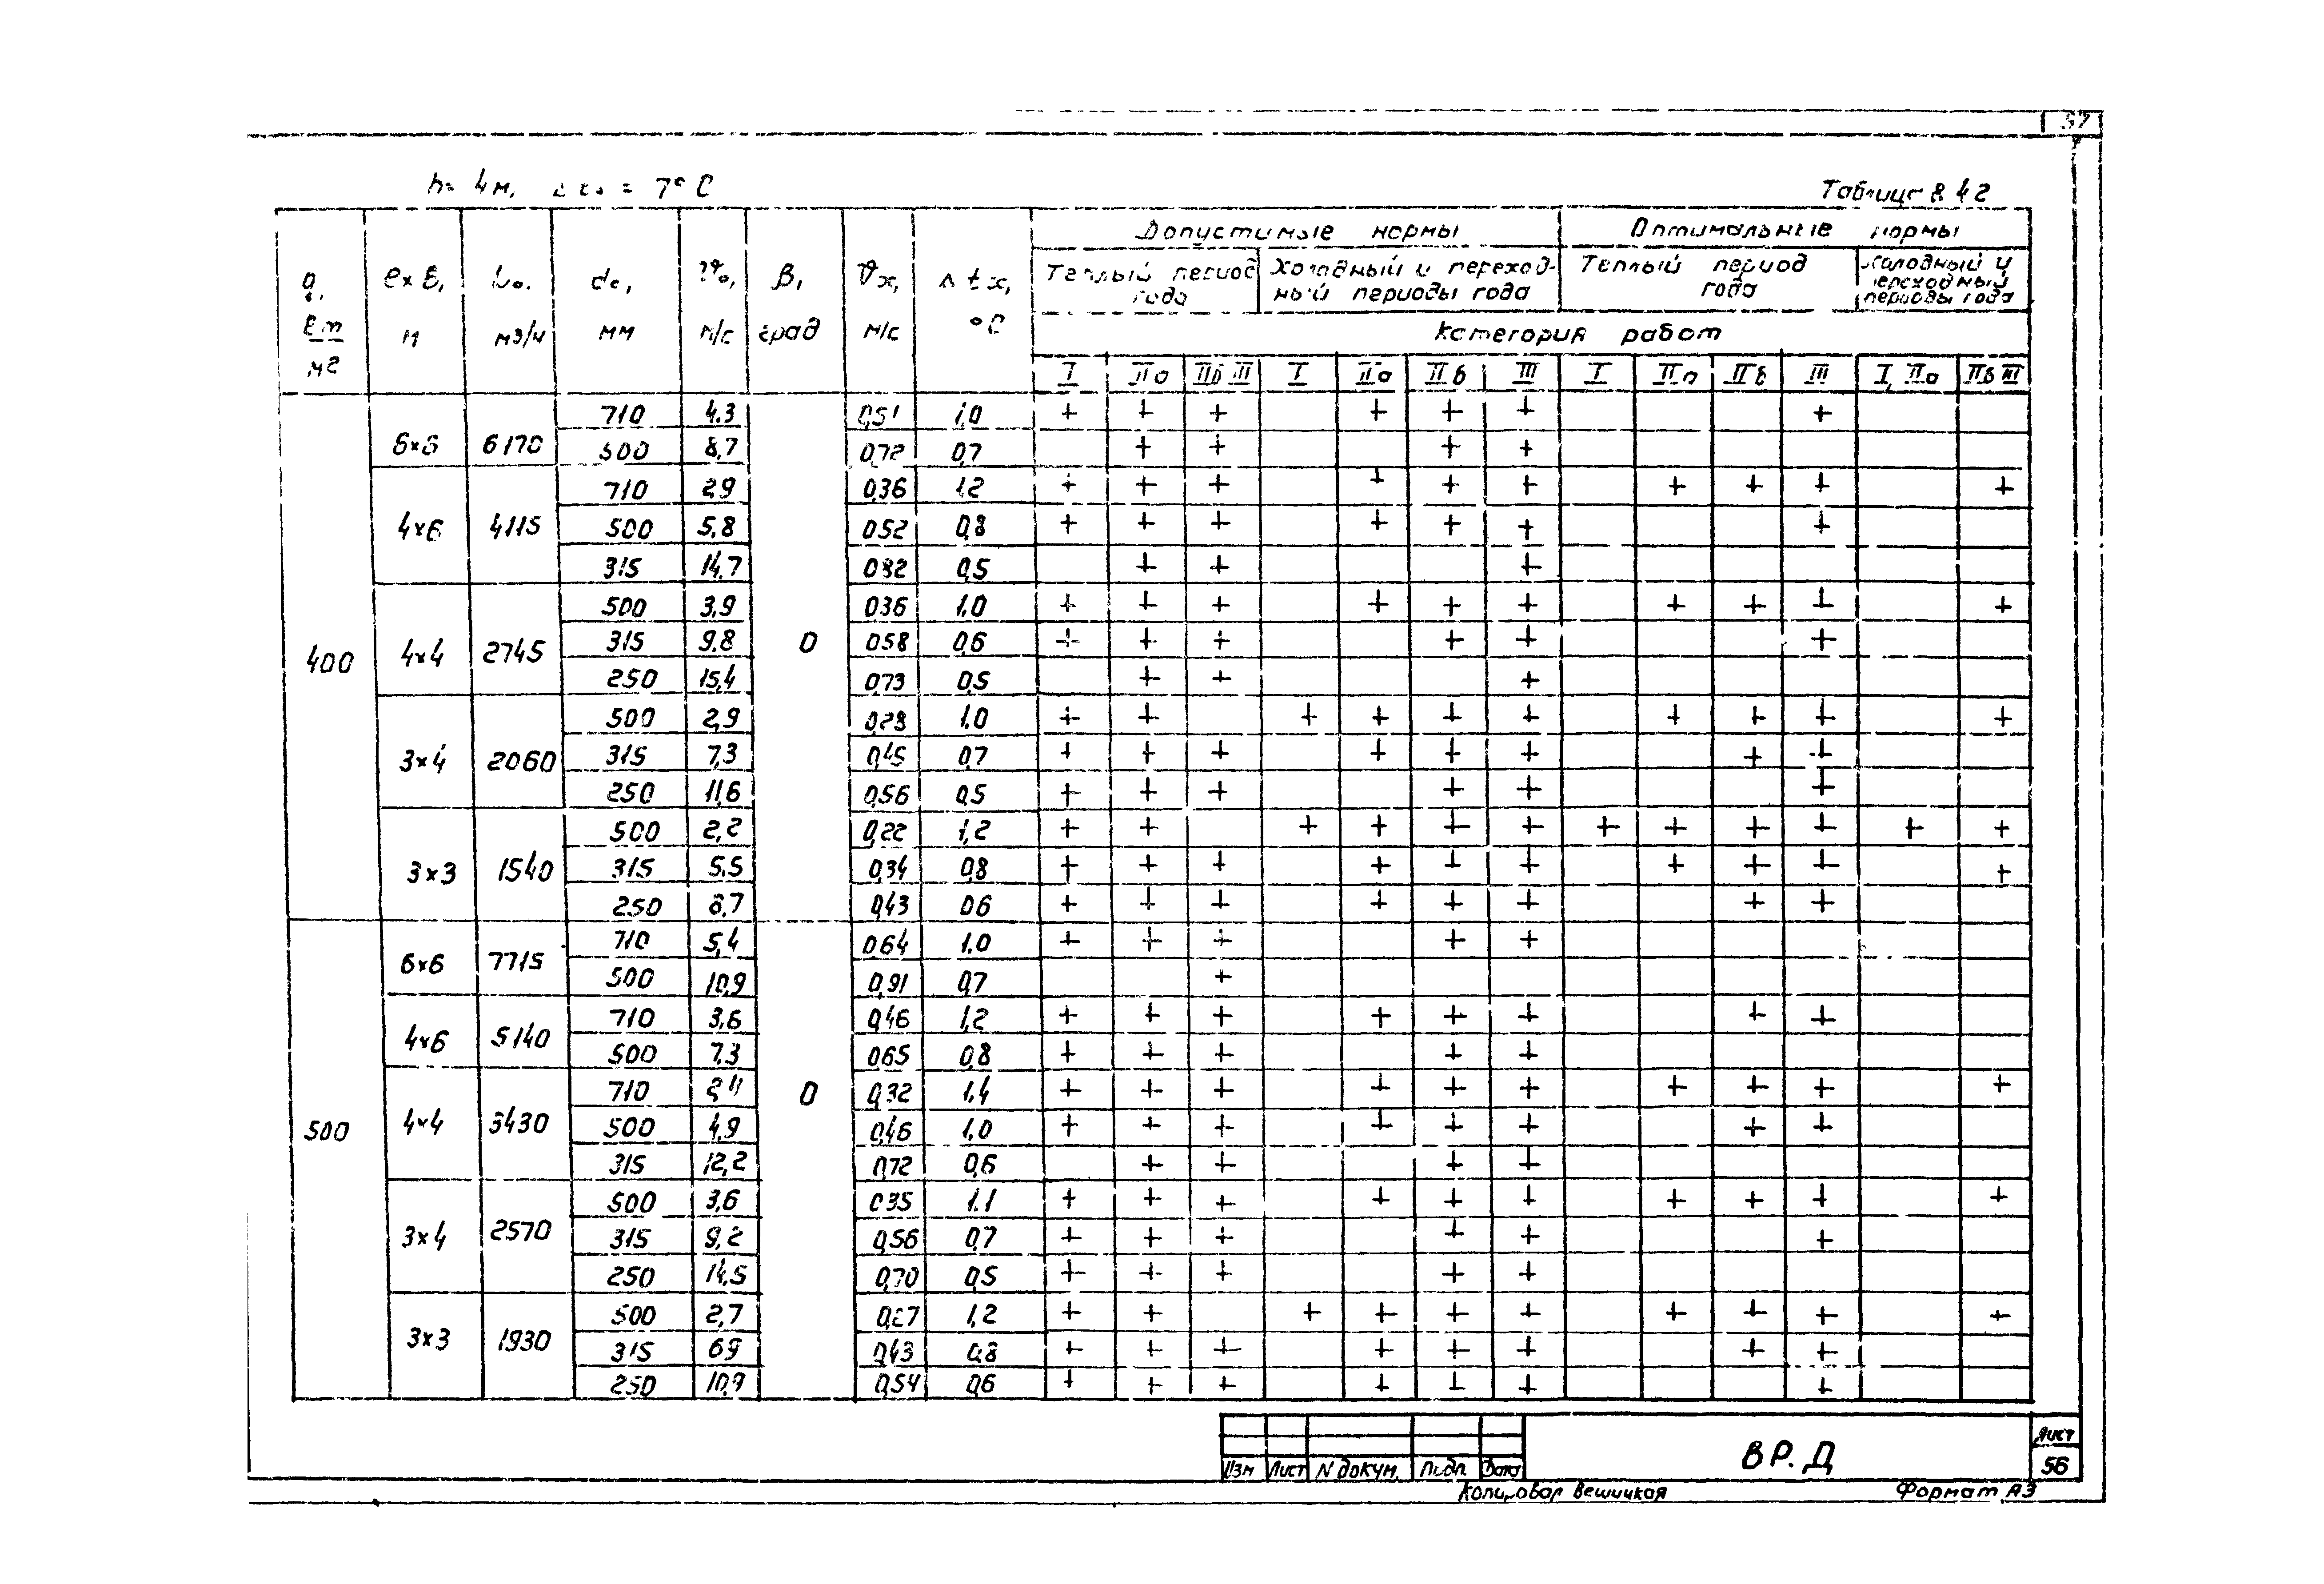 57
h= 4м, Δt₀ = 7°С
Таблица 8 42
q, Вт/м2 | ℓ×В, м | L₀, м3/ч | d₀, мм | V₀, м/с | β, град | Vх, м/с | Δtх, °С | Допустимые нормы | Оптимальные нормы
Теплый период года | Холодный и переходный периоды года | Теплый период года | Холодный и переходный периоды года
Категория работ
I | IIа | IIб III | I | IIа | IIб | III | I | IIа | IIб | III | I, IIа | IIб III
400 | 6×6 | 6170 | 710 | 4.3 | 0 | 0,51 | 1,0 | + | + | + | | + | + | + | | | | + | |
500 | 8,7 | 0,72 | 0,7 | | + | + | | | + | + | | | | | |
4×6 | 4115 | 710 | 2,9 | 0,36 | 1,2 | + | + | + | | + | + | + | | + | + | + | | +
500 | 5,8 | 0,52 | 0,8 | + | + | + | | + | + | + | | | | + | |
315 | 14,7 | 0,82 | 0,5 | | + | + | | | | + | | | | | |
4×4 | 2745 | 500 | 3,9 | 0,36 | 1.0 | + | + | + | | + | + | + | | + | + | + | | +
315 | 9,8 | 0,58 | 0,6 | + | + | + | | | + | + | | | | + | |
250 | 15,4 | 0,73 | 0,5 | | + | + | | | | + | | | | | |
3×4 | 2060 | 500 | 2,9 | 0,28 | 1.0 | + | + | | + | + | + | + | | + | + | + | | +
315 | 7,3 | 0,45 | 0,7 | + | + | + | | + | + | + | | | + | + | |
250 | 11,6 | 0,56 | 0,5 | + | + | + | | | + | + | | | | + | |
3×3 | 1540 | 500 | 2,2 | 0,22 | 1,2 | + | + | | + | + | + | + | + | + | + | + | + | +
315 | 5,5 | 0,34 | 0,8 | + | + | + | | + | + | + | | + | + | + | | +
250 | 8,7 | 0,43 | 0,6 | + | + | + | | + | + | + | | | + | + | |
500 | 6×6 | 7715 | 710 | 5,4 | 0 | 0,64 | 1.0 | + | + | + | | | + | + | | | | | |
500 | 10,9 | 0,91 | 0,7 | | | + | | | | | | | | | |
4×6 | 5140 | 710 | 3,6 | 0,46 | 1,2 | + | + | + | | + | + | + | | | + | + | |
500 | 7,3 | 0,65 | 0,8 | + | + | + | | | + | + | | | | | |
4×4 | 3430 | 710 | 2,4 | 0,32 | 1,4 | + | + | + | | + | + | + | | + | + | + | | +
500 | 4,9 | 0,46 | 1,0 | + | + | + | | + | + | + | | | + | + | |
315 | 12,2 | 0,72 | 0,6 | | + | + | | | + | + | | | | | |
3×4 | 2570 | 500 | 3,6 | 0,35 | 1.1 | + | + | + | | + | + | + | | + | + | + | | +
315 | 9,2 | 0,56 | 0,7 | + | + | + | | | + | + | | | | + | |
250 | 14,5 | 0,70 | 0,5 | + | + | + | | | + | + | | | | | |
3×3 | 1930 | 500 | 2,7 | 0,27 | 1,2 | + | + | | + | + | + | + | | + | + | + | | +
315 | 6,9 | 0,43 | 0,8 | + | + | + | | + | + | + | | | + | + | |
250 | 10,9 | 0,54 | 0,6 | + | + | + | | + | + | + | | | | + | |
Изм Лист N докум. Подп. Дата
ВР.Д
Лист
56
Копировал Вешицкая Формат А3